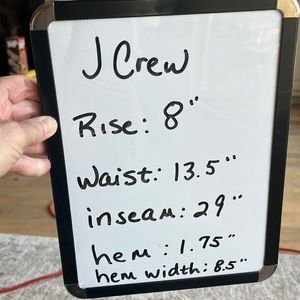 J Crew
Rise: 8"
Waist: 13.5"
inseam: 29"
hem: 1.75"
hem width: 8.5"